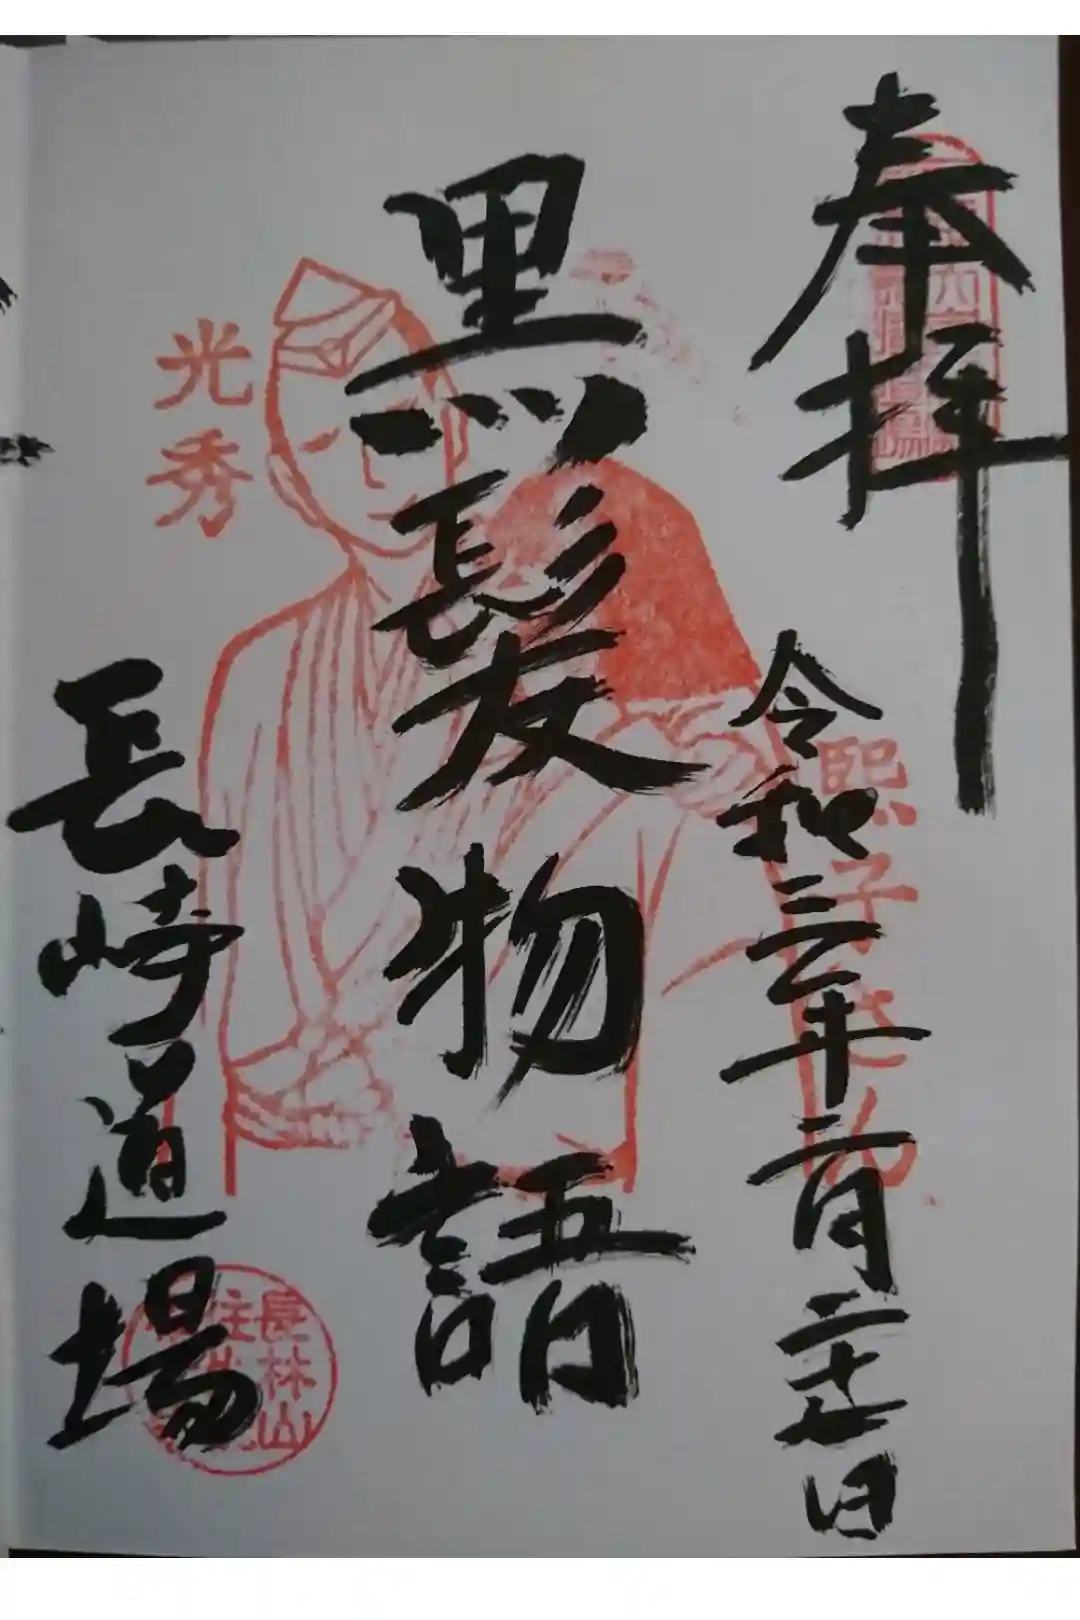 奉拝
令和三年二月二十七日
黒髪物語
長崎道場
熙子さん
光秀
長林山